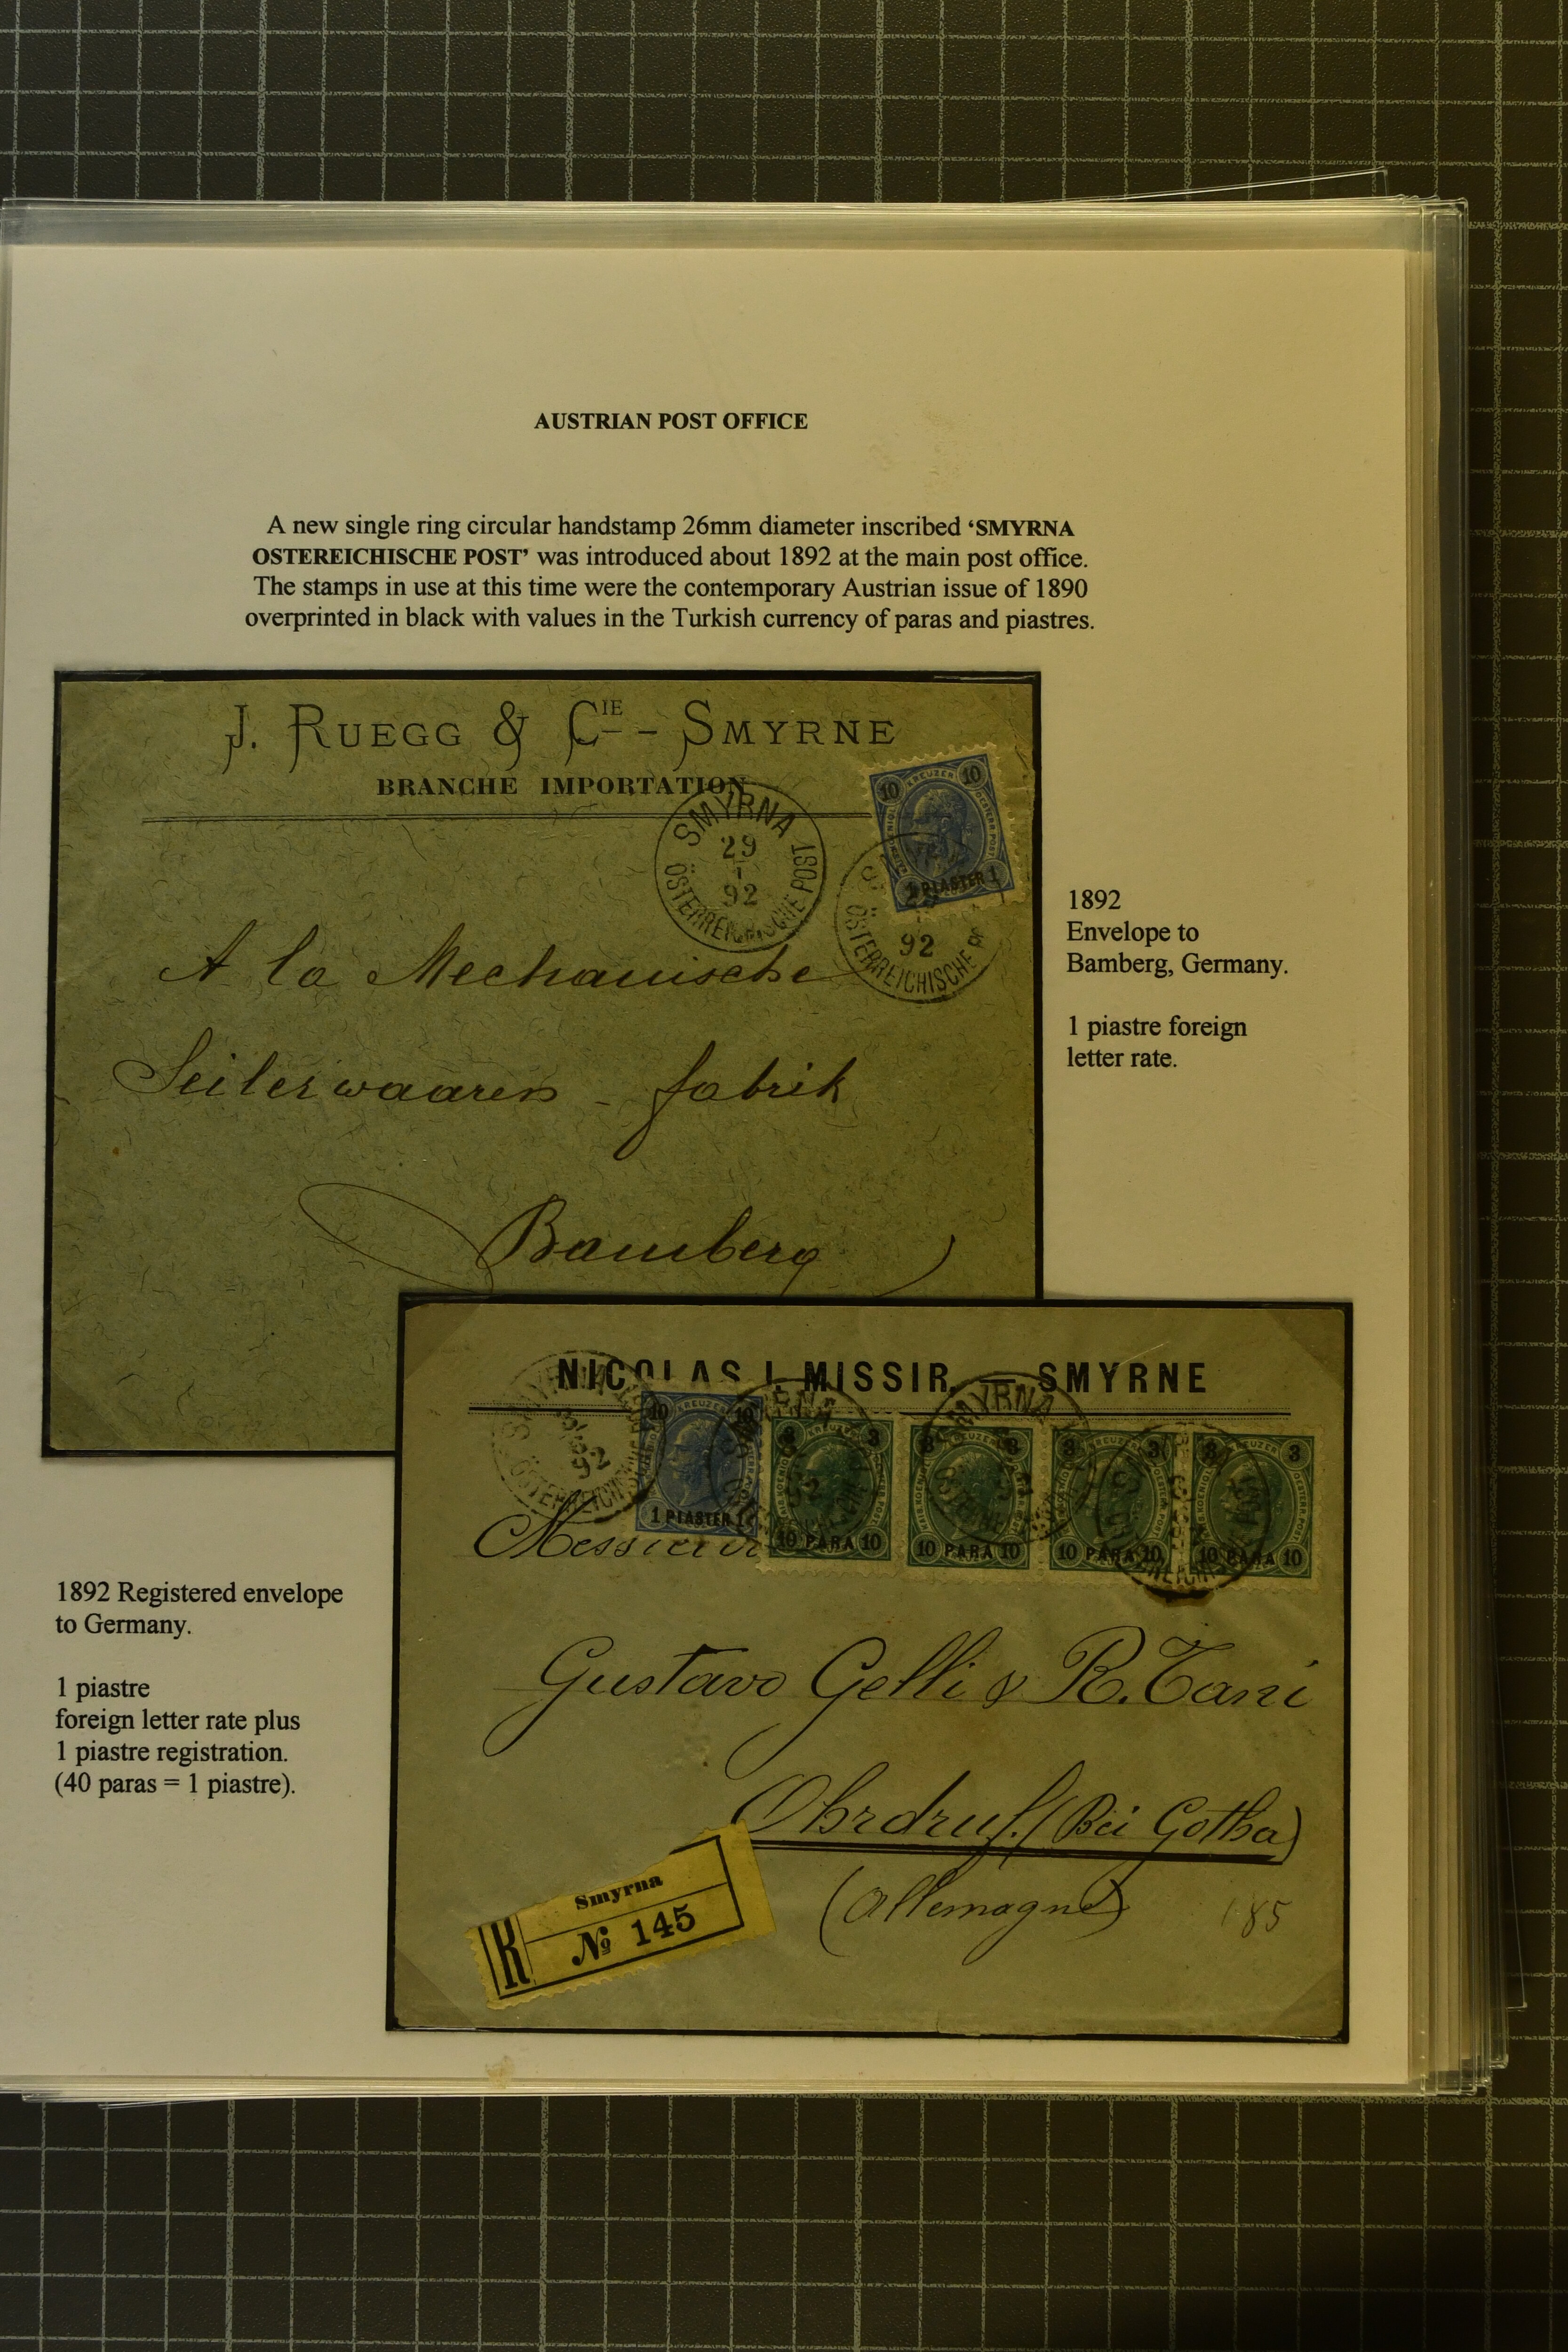 AUSTRIAN POST OFFICE
A new single ring circular handstamp 26mm diameter inscribed ‘SMYRNA
OSTEREICHISCHE POST’ was introduced about 1892 at the main post office.
The stamps in use at this time were the contemporary Austrian issue of 1890
overprinted in black with values in the Turkish currency of paras and piastres.
J. RUEGG & CIE - SMYRNE
BRANCHE IMPORTATION
SMYRNA
29
I
92
ÖSTERREICHISCHE POST
10 KREUZER 10
1 PIASTER 1
92
ÖSTERREICHISCHE
A la Mechanische
Seilerwaaren - fabrik
Bamberg
1892
Envelope to
Bamberg, Germany.
1 piastre foreign
letter rate.
NICOLAS J. MISSIR. — SMYRNE
SMYRNA
92
10 KREUZER 10
1 PIASTER 1
3 KREUZER 3
10 PARA 10
3 KREUZER 3
10 PARA 10
3 KREUZER 3
10 PARA 10
3 KREUZER 3
10 PARA 10
Messieurs
Gustavo Gelli & R. Tani
Ohrdruf. (Bei Gotha)
(Allemagne)
185
R
Smyrna
№ 145
1892 Registered envelope
to Germany.
1 piastre
foreign letter rate plus
1 piastre registration.
(40 paras = 1 piastre).